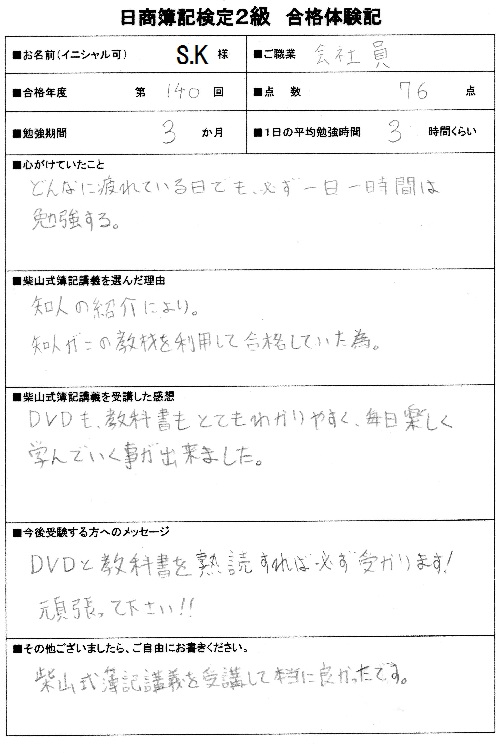 日商簿記検定2級 合格体験記
■お名前(イニシャル可) S.K 様 ■ご職業 会社員
■合格年度 第 140 回 ■点 数 76 点
■勉強期間 3 か月 ■1日の平均勉強時間 3 時間くらい
■心がけていたこと
どんなに疲れている日でも、必ず一日一時間は
勉強する。
■柴山式簿記講義を選んだ理由
知人の紹介により。
知人がこの教材を利用して合格していた為。
■柴山式簿記講義を受講した感想
DVDも、教科書もとてもわかりやすく、毎日楽しく
学んでいく事が出来ました。
■今後受験する方へのメッセージ
DVDと教科書を熟読すれば必ず受かります!
頑張って下さい!!
■その他ございましたら、ご自由にお書きください。
柴山式簿記講義を受講して本当に良かったです。